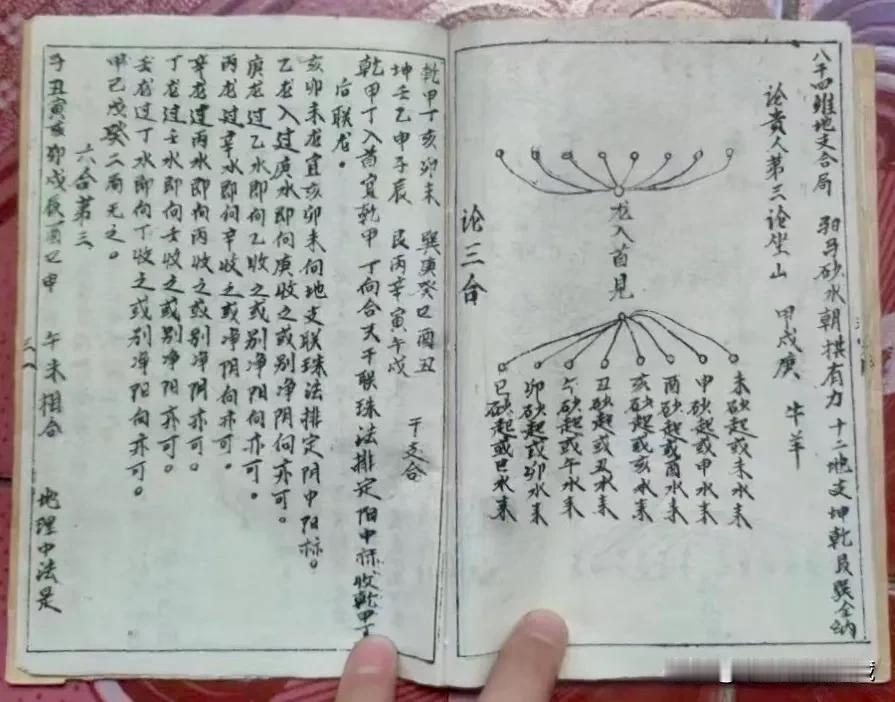 八干四维地支合局　驲马砂水朝拱有力　十二地支坤乾艮巽全纳
论贵人第三论坐山　甲戊庚　牛羊
龙入首见
未砂起或未水来
申砂起或申水来
酉砂起或酉水来
亥砂起或亥水来
丑砂起或丑水来
午砂起或午水来
卯砂起或卯水来
巳砂起或巳水来
论三合
乾甲丁亥卯未　巽庚癸巳酉丑
坤壬乙申子辰　艮丙辛寅午戌　干支合
乾甲丁入首宜乾甲丁向合天干联珠法排定阳中标收乾甲丁
后联龙。
亥卯未龙宜亥卯未向地支联珠法排定阴中阳标。
乙龙入过庚水即向庚收之或别净阴向亦可。
庚龙过乙水即向乙收之或别净阳向亦可。
丙龙过辛水即向辛收之或净阴向亦可。
辛龙过丙水即向丙收之或别净阴亦可。
丁龙过壬水即向壬收之或别净阳亦可。
壬龙过丁水即向丁收之或别净阳向亦可。
甲己戊癸二局无之。
六合第三
子丑寅亥卯戌辰酉巳申　午未相合　地理中法是
三一